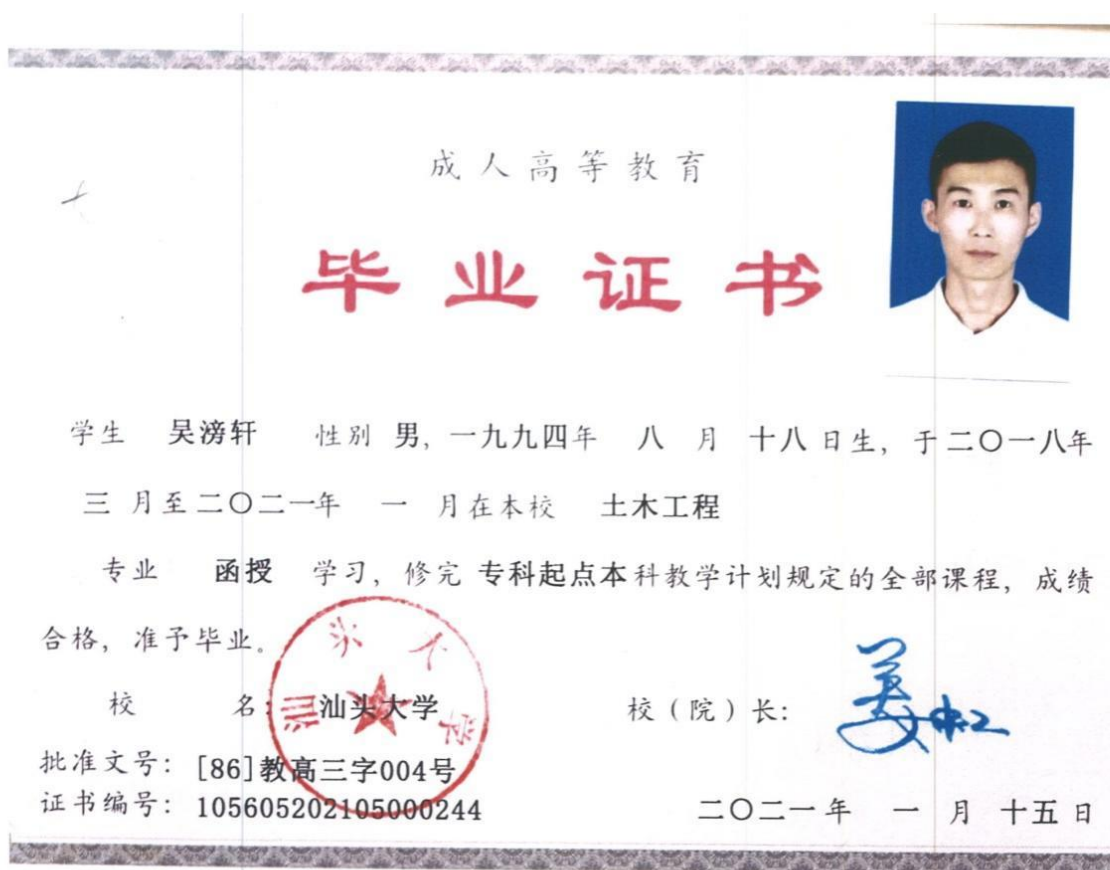 成人高等教育
毕业证书
学生 吴滂轩 性别 男，一九九四年 八 月 十八 日生，于二〇一八年
三 月至二〇二一年 一 月在本校 土木工程
专业 函授 学习，修完 专科起点本科教学计划规定的全部课程，成绩
合格，准予毕业。
校 名：汕头大学 校（院）长：
汕头大学
批准文号：[86]教高三字004号
证书编号：105605202105000244 二〇二一年 一 月 十五 日